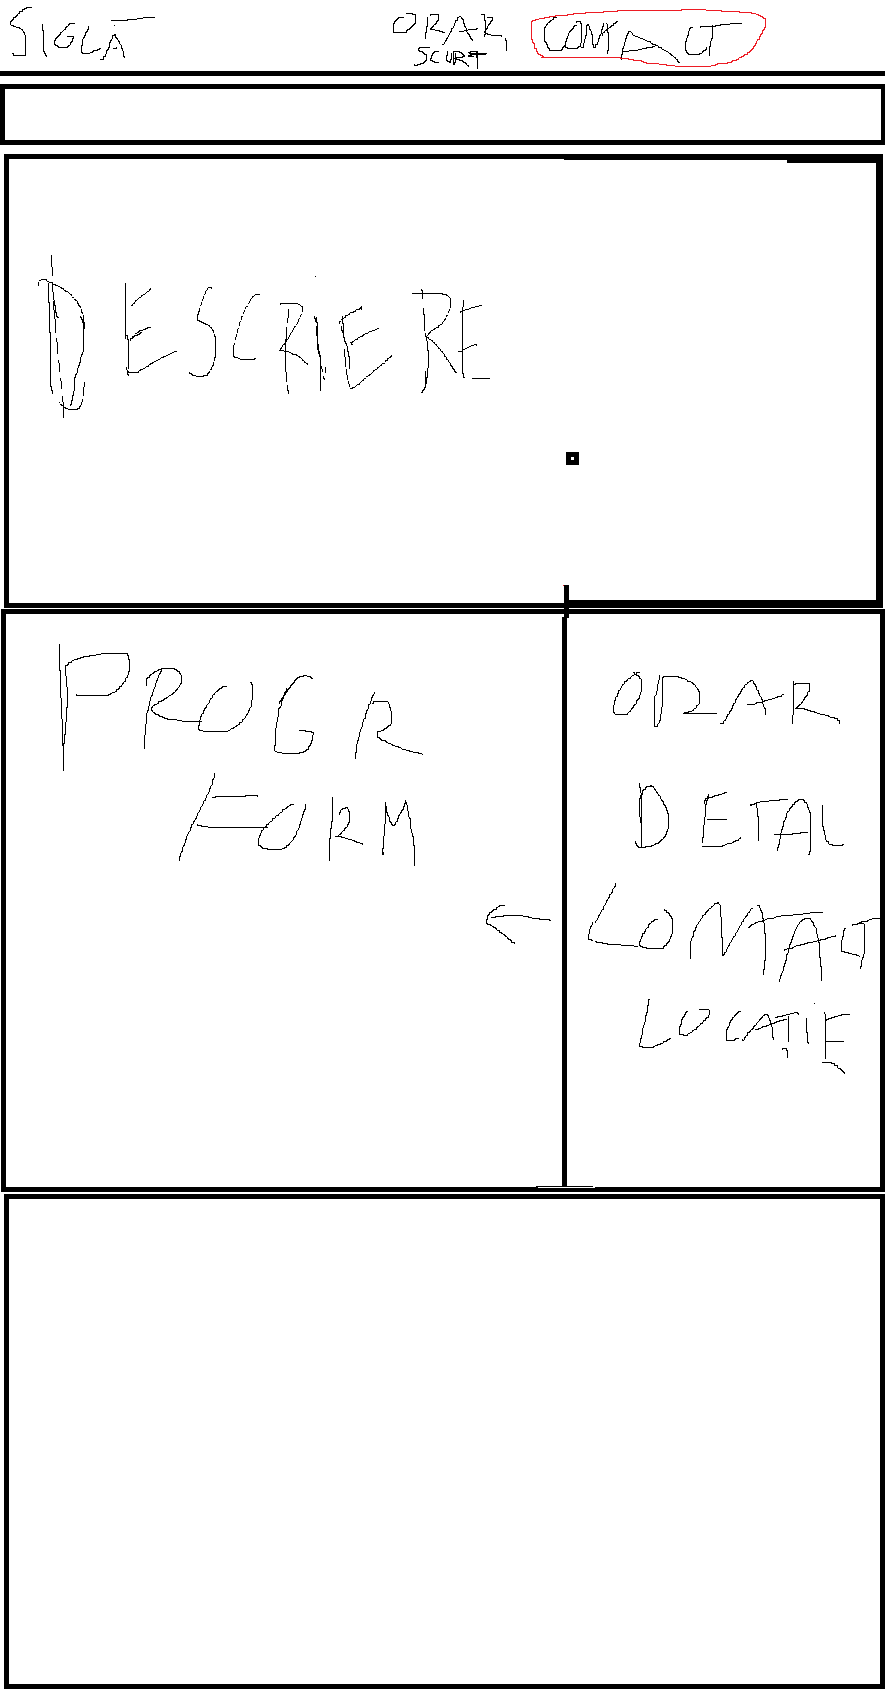 SIGLĂ ORAR SCURT CONTACT
DESCRIERE
PROGR
FORM
ORAR
DETAL
CONTACT
LOCAȚIE